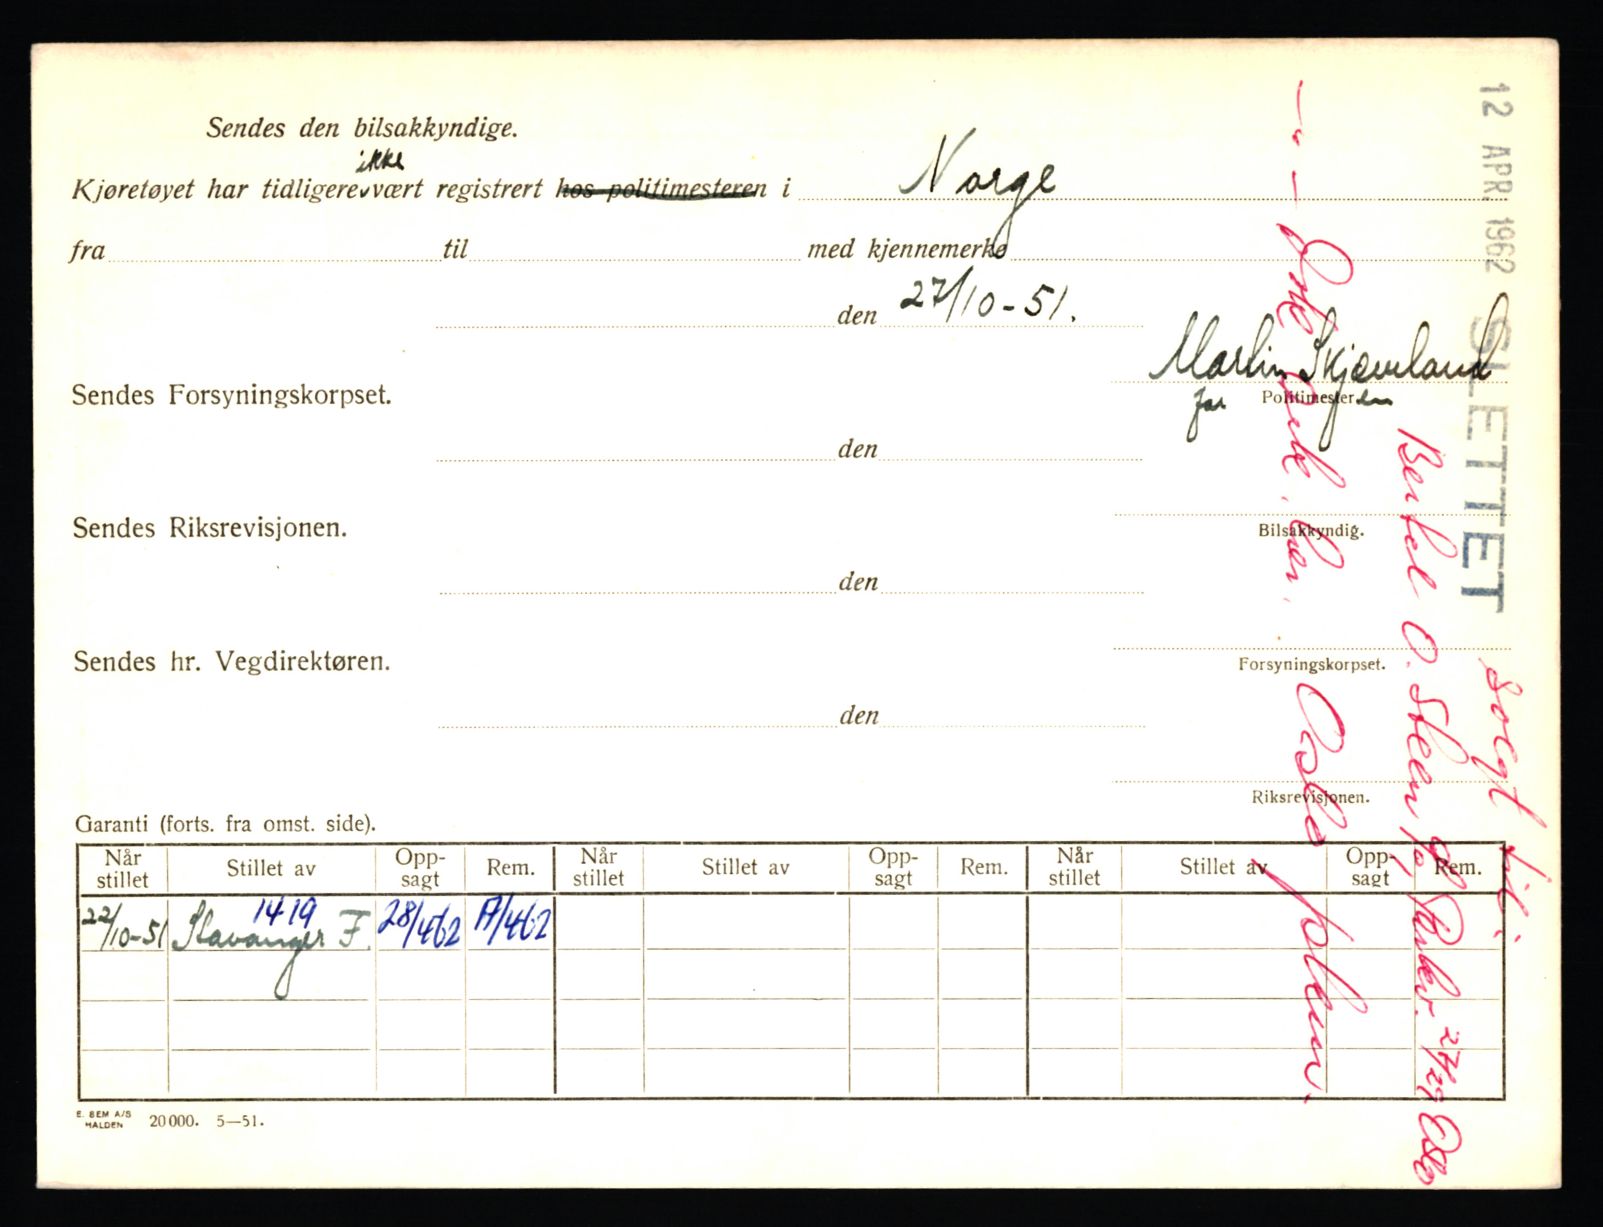 Sendes den bilsakkyndige.
ikke
Kjøretøyet har tidligere vært registrert hos politimesteren i Norge
fra til med kjennemerke
den 27/10-51.
Martin Skjæveland
Sendes Forsyningskorpset.
for Politimesteren
den
Sendes Riksrevisjonen.
Bilsakkyndig.
den
Sendes hr. Vegdirektøren.
Forsyningskorpset.
den
Riksrevisjonen.
Garanti (forts. fra omst. side).
Når stillet Stillet av Opp-sagt Rem. Når stillet Stillet av Opp-sagt Rem. Når stillet Stillet av Opp-sagt Rem.
1419
22/10-51 Stavanger F 28/462 A/462
E. BEM A/S
HALDEN 20000. 5—51.
12 APR. 1962 SLETTET
Solgt til:
Bertel O. Steen, 27/29 Oslo
Oslo